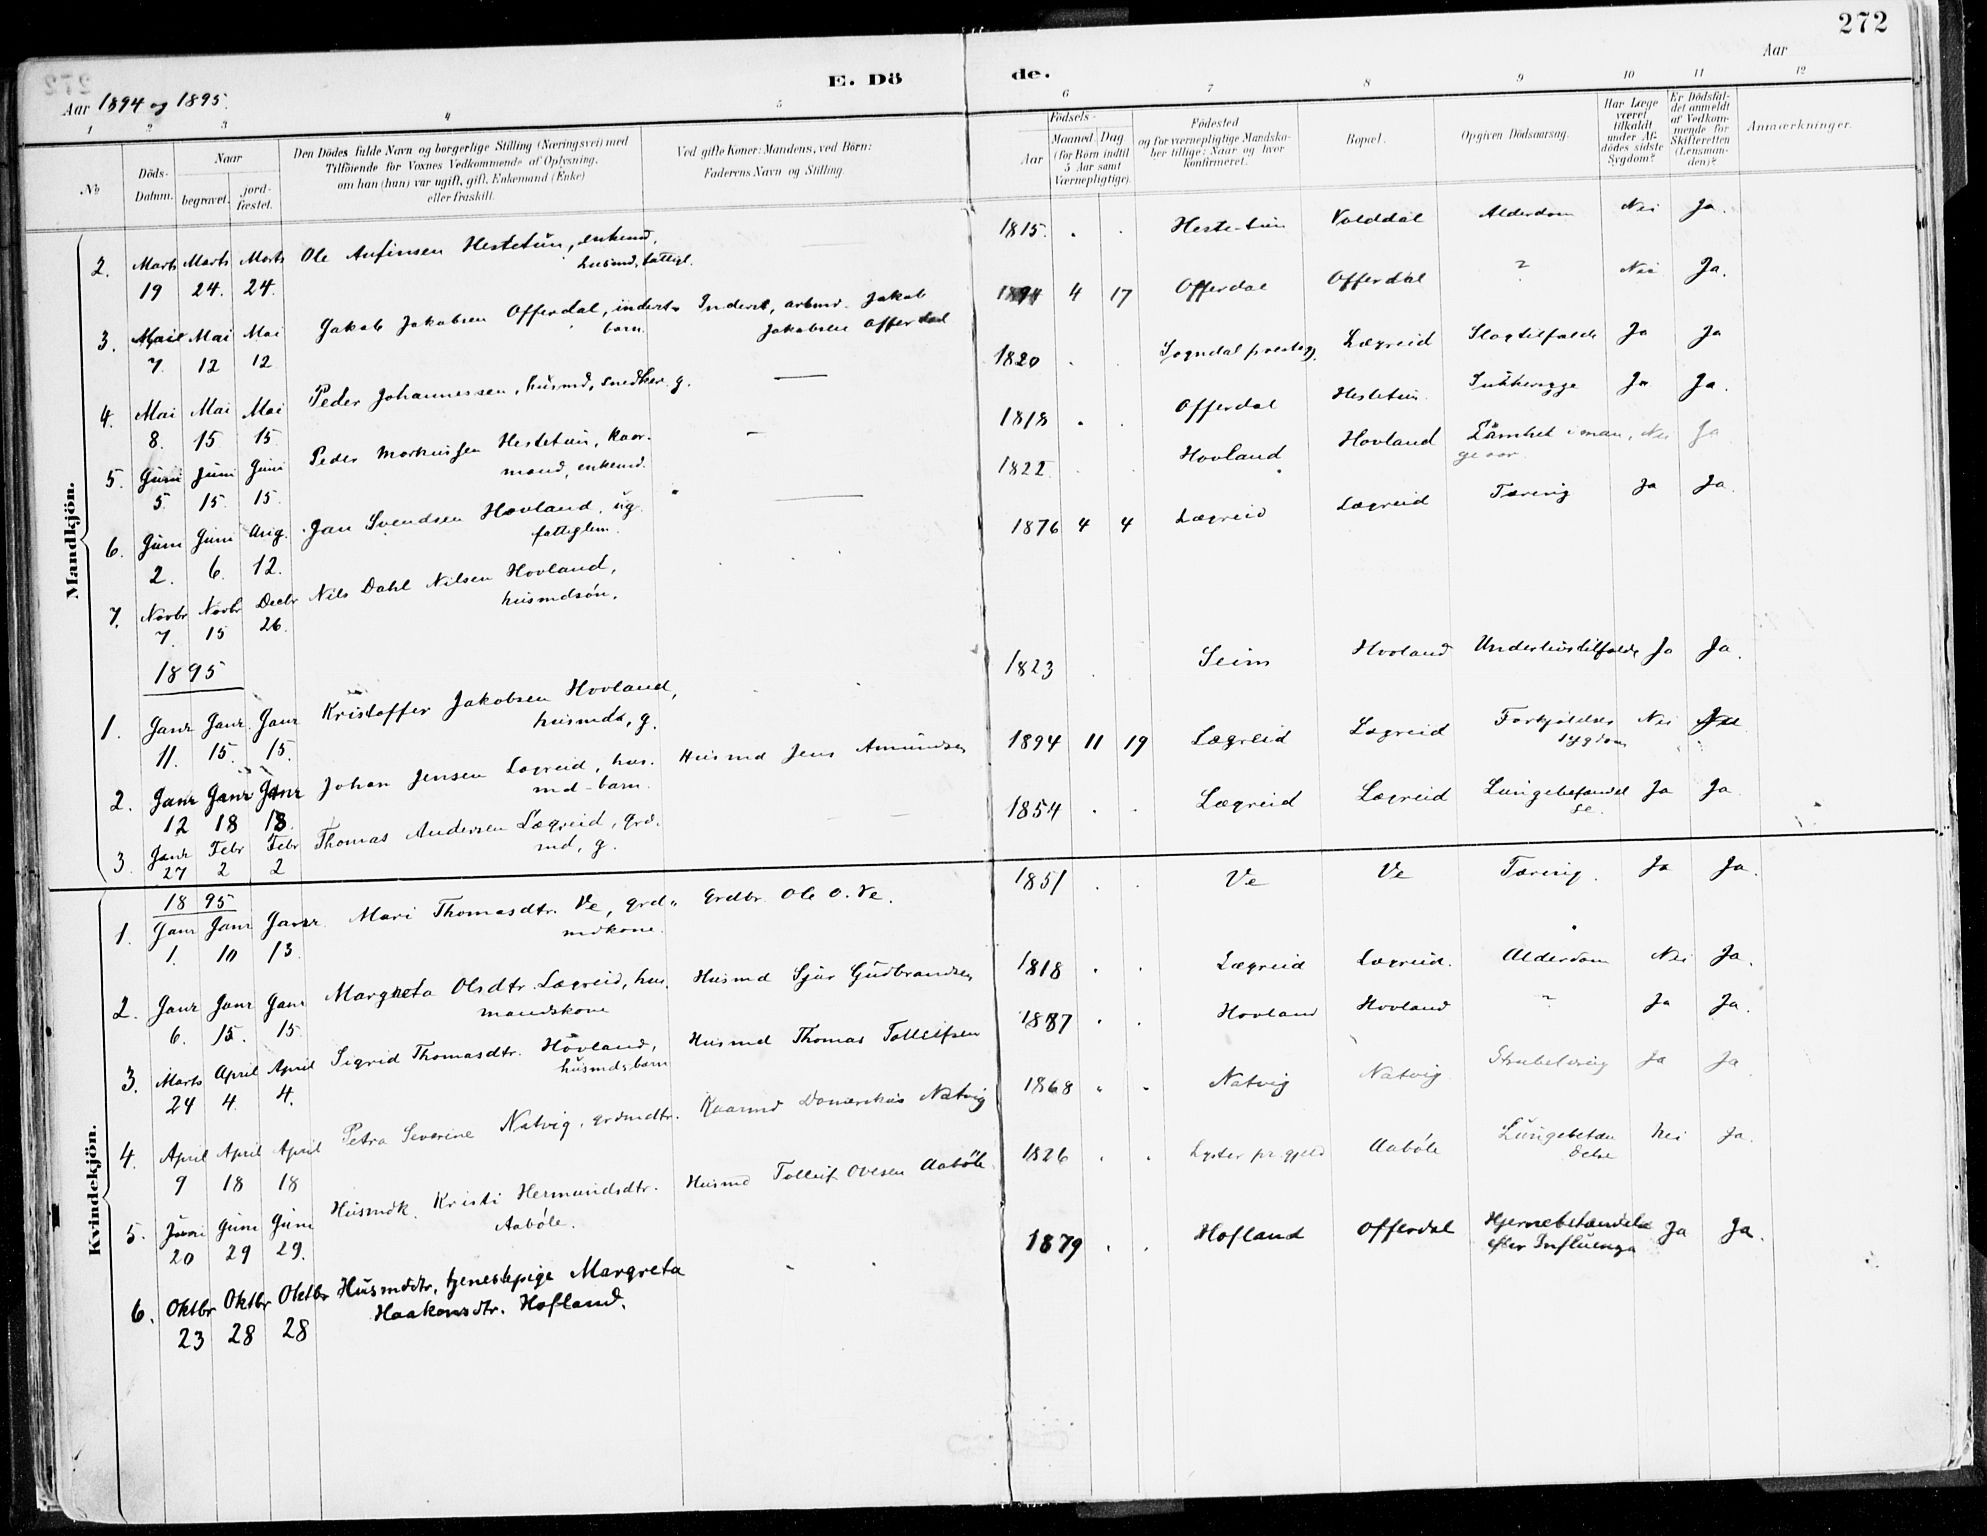 272
E. Dö de.
Aar 1894 og 1895.
Aar
1 2 3 4 5 6 7 8 9 10 11 12
No
Döds-Datum.
Naar
begravet.
jord-fæstet.
Den Dödes fulde Navn og borgerlige Stilling (Næringsvei) med
Tilföiende for Voxnes Vedkommende af Oplysning,
om han (hun) var ugift, gift, Enkemand (Enke)
eller fraskilt.
Ved gifte Koner: Mandens, ved Börn:
Faderens Navn og Stilling.
Födsels-
Aar
Maaned Dag
(for Börn indtil
5 Aar samt
Værnepligtige).
Födested
og for værnepligtige Mandskaber tillige: Naar og hvor
konfirmeret.
Bopæl.
Opgiven Dödsaarsag.
Har Læge
været
tilkaldt
under Afdödes sidste
Sygdom?
Er Dödsfaldet anmeldt
af Vedkommende for
Skifteretten
(Lensmanden)?
Anmærkninger.
Mandkjön.
2. Marts 19 Marts 24. Marts 24. Ole Anfinsen Hestetun, enkemd, husmd, fattigl. — 1815. Hestetun Volddal Alderdom Nei Ja.
3. Mai 7. Mai 12 Mai 12 Jakob Jakobsen Offerdal, inderst-barn. Inderst, arbmd. Jakob Jakobsen Offerdal 1894 4 17 Offerdal Offerdal ? Nei Ja.
4. Mai 8. Mai 15 Mai 15 Peder Johannessen, husmd, snedker g. — 1820 Sogndal præstegj. Lægreid Slagtilfælde Ja Ja
5. Juni 5. Juni 15. Juni 15. Peder Markussen Hestetun, kaarmand, enkemd. — 1818 Offerdal Hestetun Sukkersyge Ja Ja.
6. Juni 2. Juni 6. Aug. 12. Jan Svendsen Hovland, ug. fattiglem. — 1822 Hovland Hovland Lamhed i mange aar. Nei Ja
7. Novbr 7. Novbr 15 Decbr 26. Nils Dahl Nilsen Hovland, husmdsön. 1876 4 4 Lægreid Lægreid Tæring Ja Ja.
1895
1. Janr 11. Janr. 15. Janr 15. Kristoffer Jakobsen Hovland, husmd, g. 1823 Seim Hovland Underlivstilfælde Ja Ja.
2. Janr 12 Janr 18 Janr 18. Johan Jensen Lægreid, husmd-barn. Husmd Jens Amundsen 1894 11 19 Lægreid Lægreid Forkjölelsessygdom Nei
3. Janr 27 Febr 2 Febr 2 Thomas Andersen Lægreid, grdmd, g. 1854 Lægreid Lægreid Lungebetændelse. Ja Ja.
Kvindekjön.
1895
1. Janr 1. Janr 10 Janr 13. Mari Thomasdtr. Ve, grdmdkone. Grdbr. Ole O. Ve. 1851 Ve Ve Tæring. Ja Ja.
2. Janr 6. Janr 15. Janr 15. Margreta Olsdtr. Lægreid, husmandskone Husmd Sjur Gudbrandsen 1818 Lægreid Lægreid. Alderdom Nei Ja.
3. Marts 24 April 4. April 4. Sigrid Thomasdtr. Hovland, husmdsbarn Husmd Thomas Tolleifsen 1887 Hovland Hovland ? Ja Ja.
4. April 9 April 18 April 18 Petra Severine Natvig, grdmdtr. Kaarmd Natvig 1868 Natvig Natvig Ja Ja
5. Juni 20 Juni 29 Juni 29. Husmdk. Kristi Hermundsdtr. Aaböle. Husmd Tolleif Olesen Aaböle 1826 Lyster pr.gjeld Aaböle Lungebetændelse Nei Ja.
6. Oktbr 23 Oktbr 28 Oktbr 28 Husmdsdtr, tjenestepige Margreta Haakonsdtr. Hofland. 1879 Hofland Offerdal Hjernebetændelse efter Influenza Ja Ja.